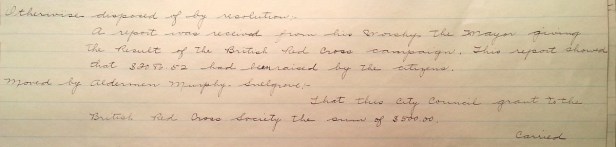 Otherwise disposed of by resolution.
A report was received from his Worship the Mayor giving
the Result of the British Red Cross campaign. This report showed
that $2080.52 had been raised by the citizens.
Moved by Aldermen Murphy. Snelgrove:-
That this City Council grant to the
British Red Cross Society the sum of $500.00.
Carried